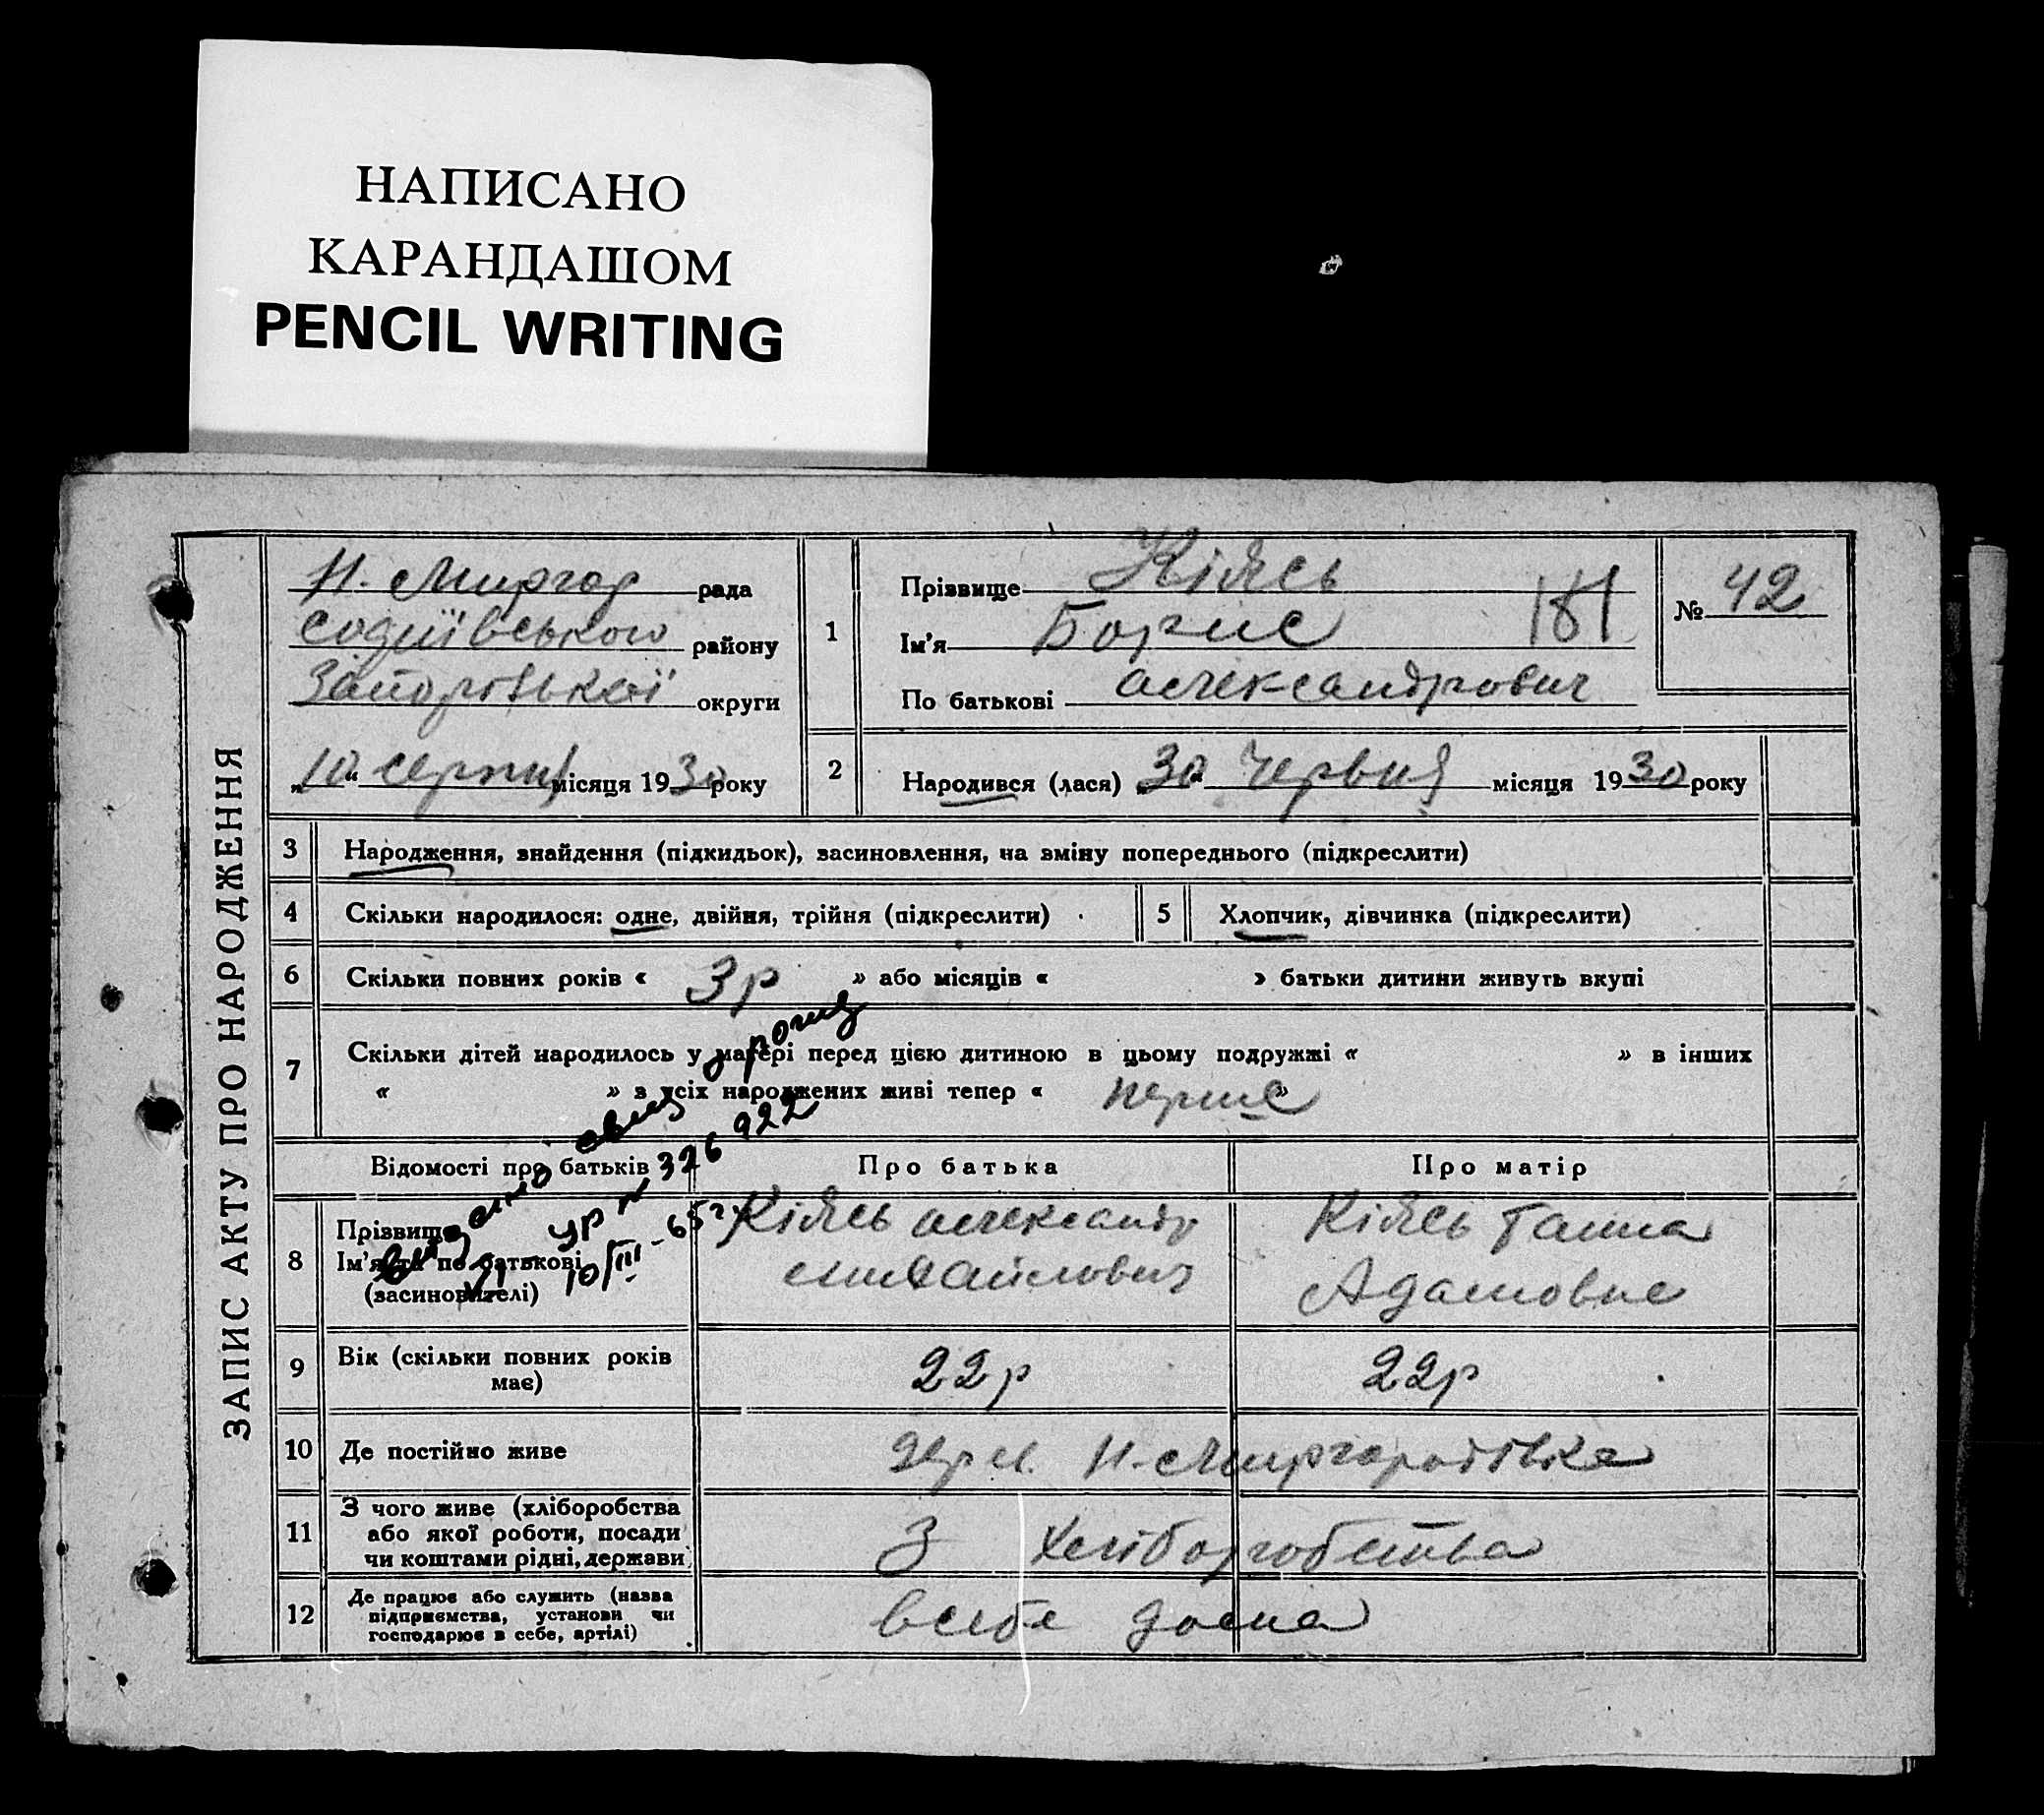 НАПИСАНО
КАРАНДАШОМ
PENCIL WRITING
ЗАПИС АКТУ ПРО НАРОДЖЕННЯ
Н. Миргор рада
софиївського району
Запорізької округи
„10“ серпня місяця 1930 року
1
Прізвище Кіясь
Ім'я Борис 181
По батькові Александрович
№ 42
2
Народився (лася) „30“ Червня місяця 1930 року
3 Народження, знайдення (підкидьок), засиновлення, на зміну попереднього (підкреслити)
4 Скільки народилося: одне, двійня, трійня (підкреслити)
5 Хлопчик, дівчинка (підкреслити)
6 Скільки повних років « 3р » або місяців « » батьки дитини живуть вкупі
7 Скільки дітей народилось у матері перед цією дитиною в цьому подружжі « » в інших
« » з усіх народжених живі тепер « перше »
Відомості про батьків Про батька Про матір
8 Прізвище
Ім'я та по батькові
(засиновителі)
Кіясь Александр
Михайлович
Кіясь Ганна
Адамовна
326922
10/III-65 г.
9 Вік (скільки повних років
має)
22р 22р
10 Де постійно живе Н-Миргородівка
11 З чого живе (хліборобства
або якої роботи, посади
чи коштами рідні, держави)
З хліборобства
12 Де працює або служить (назва
підприємства, установи чи
господарює в себе, артілі)
в себе дома